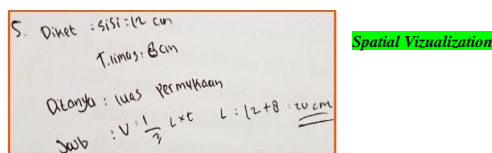 5. Diket : sisi : 12 cm
T. limas : 8 cm
Ditanya : luas permukaan
Jawb : V = 1/3 L x t L : 12 + 8 : 20 cm
Spatial Vizualization